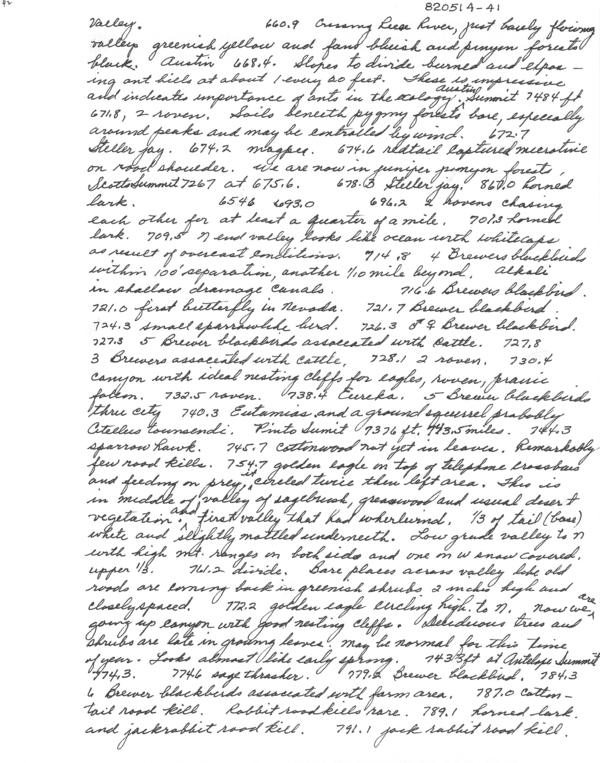 42
820514-41
Valley. 660.9 Crossing Reese River, just barely flowing
valley greenish yellow and fans bluish and pinyon forests
black. Austin 668.4. Slopes to divide burned and expos-
ing ant hills at about 1 every 20 feet. These is impressive
and indicates importance of ants in the ecology. Austin Summit 7484 ft
671.8, 2 raven. Soils beneath pygmy forests bare, especially
around peaks and may be controlled by wind. 672.7
Steller jay. 674.2 magpie. 674.6 redtail captured microtine
on road shoulder. We are now in juniper pinyon forests,
Scotts Summit 7267 at 675.6. 678.3 Steller jay. 687.0 horned
lark. 6546 693.0 696.2 2 ravens chasing
each other for at least a quarter of a mile. 701.3 horned
lark. 709.5 N end valley looks like ocean with whitecaps
as result of overcast conditions. 714.8 4 Brewers blackbirds
within 100' separation, another 1/10 mile beyond. Alkali
in shallow drainage canals. 716.6 Brewers blackbird.
721.0 first butterfly in Nevada. 721.7 Brewer blackbird.
724.3 small sparrowlike bird. 726.3 ♂ ♀ Brewer blackbird.
727.3 5 Brewer blackbirds associated with cattle. 727.8
3 Brewers associated with cattle. 728.1 2 raven. 730.4
canyon with ideal nesting cliffs for eagles, raven, prairie
falcon. 732.5 raven. 738.4 Eureka. 5 Brewer blackbirds
thru city 740.3 Eutamias and a ground squirrel probably
Citellus townsendi. Pinto Sumit 7376 ft, 743.5 miles. 744.3
sparrow hawk. 745.7 cottonwood not yet in leaves. Remarkably
few road kills. 754.7 golden eagle on top of telephone crossbars
and feeding on prey, it circled twice then left area. This is
in middle of valley of sagebrush, greasewood and usual desert
vegetation and first valley that had wherlwind. 1/3 of tail (base)
white and slightly mottled underneath. Low grade valley to N
with high mt. ranges on both sides and one on W snow covered.
upper 1/3. 761.2 divide. Bare places across valley like old
roads are coming back in greenish shrubs 2 inches high and
closely spaced. 772.2 golden eagle circling high to N. Now we are
going up canyon with good nesting cliffs. Deciduous trees and
shrubs are late in growing leaves. May be normal for this time
of year. Looks almost like early spring. 7433 ft at Antelope Summit
774.3. 774.6 sage thrasher. 779.2 Brewer blackbird. 784.3
6 Brewer blackbirds associated with farm area. 787.0 Cotton-
tail road kill. Rabbit road kills rare. 789.1 horned lark.
and jackrabbit road kill. 791.1 jack rabbit road kill.